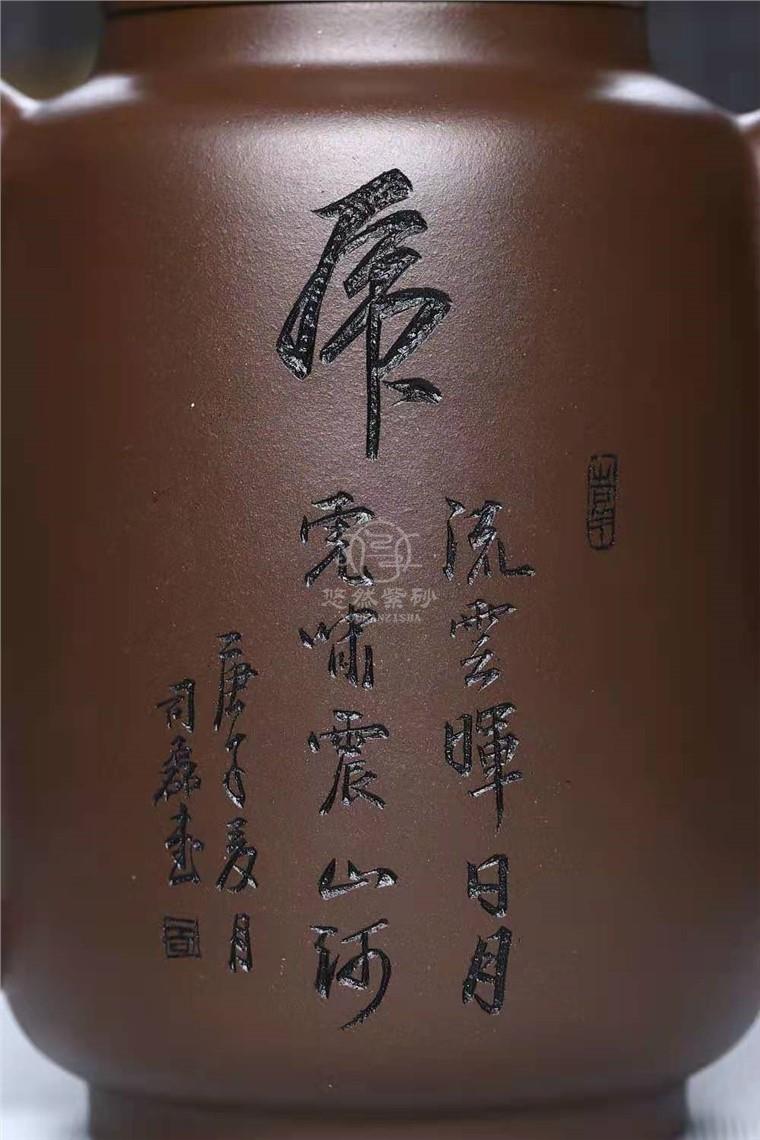 虎
流雲暉日月
虎嘯震山河
庚子夏月
司磊書
悠然紫砂